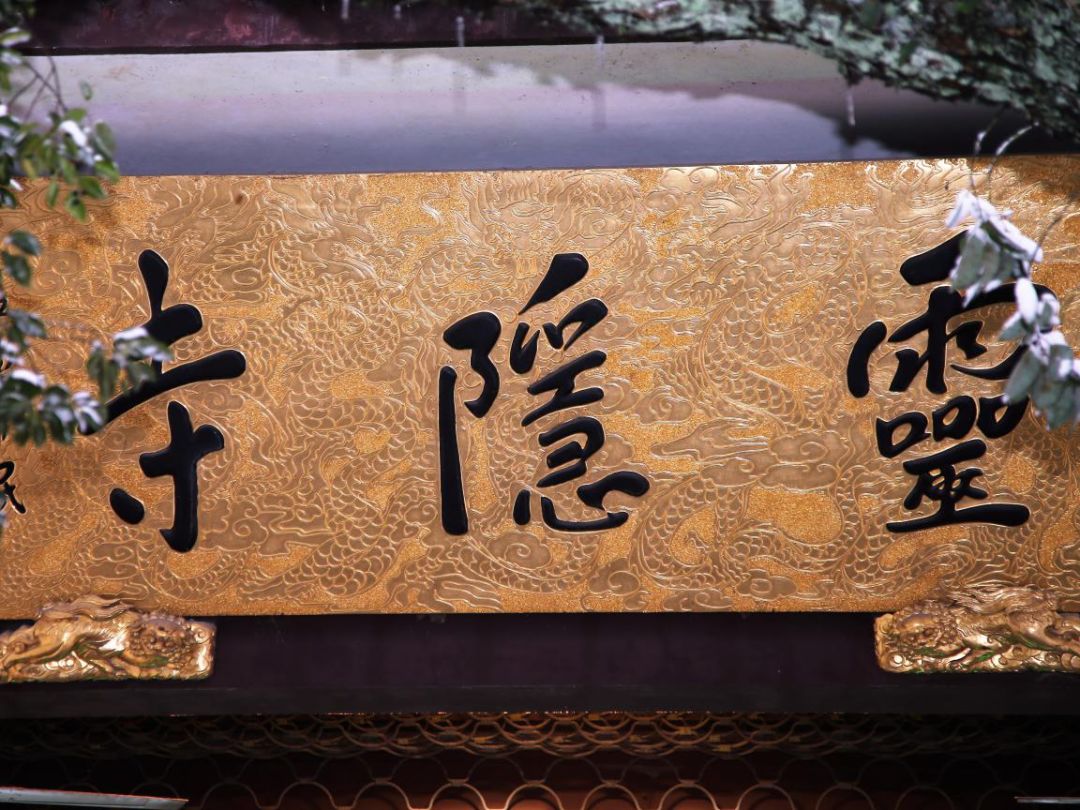 靈隱寺